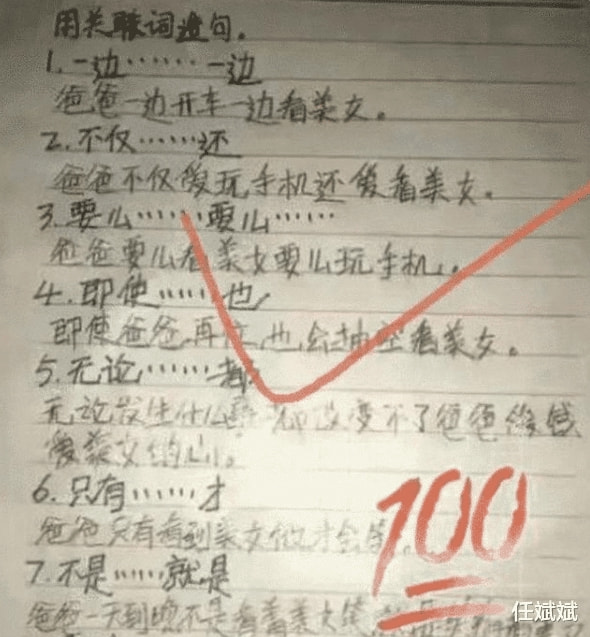 用关联词造句。
1.一边……一边
爸爸一边开车一边看美女。
2.不仅……还
爸爸不仅爱玩手机还爱看美女。
3.要么……要么……
爸爸要么看美女要么玩手机。
4.即使……也
即使爸爸再 也会抽空看美女。
5.无论……都
无论发生什么 都改变不了爸爸
爱美女的心。
6.只有……才
爸爸只有看到美女他才会笑
7.不是……就是
爸爸一天到晚不是看美女大笑就是
100
任斌斌